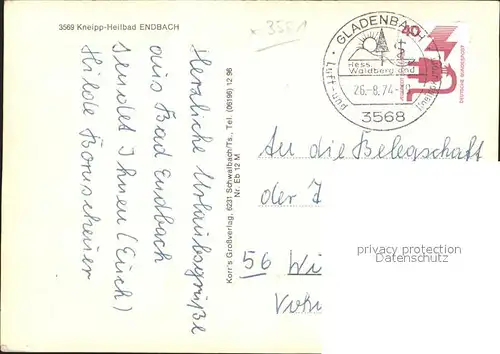 3569 Kneipp-Heilbad ENDBACH
x 3581
Herzliche Urlaubsgrüße
aus Bad Endbach
sendet Ihnen (Euch)
Hilde
Korr's Großverlag, 6231 Schwalbach/Ts., Tel. (06196) 12 96
Nr. Eb 12 M
GLADENBACH
Hess.
Waldbergland
26.-8.74
Luft- und
3568
40
DEUTSCHE BUNDESPOST
An die Belegschaft
der
56 Wi
privacy protection
Datenschutz